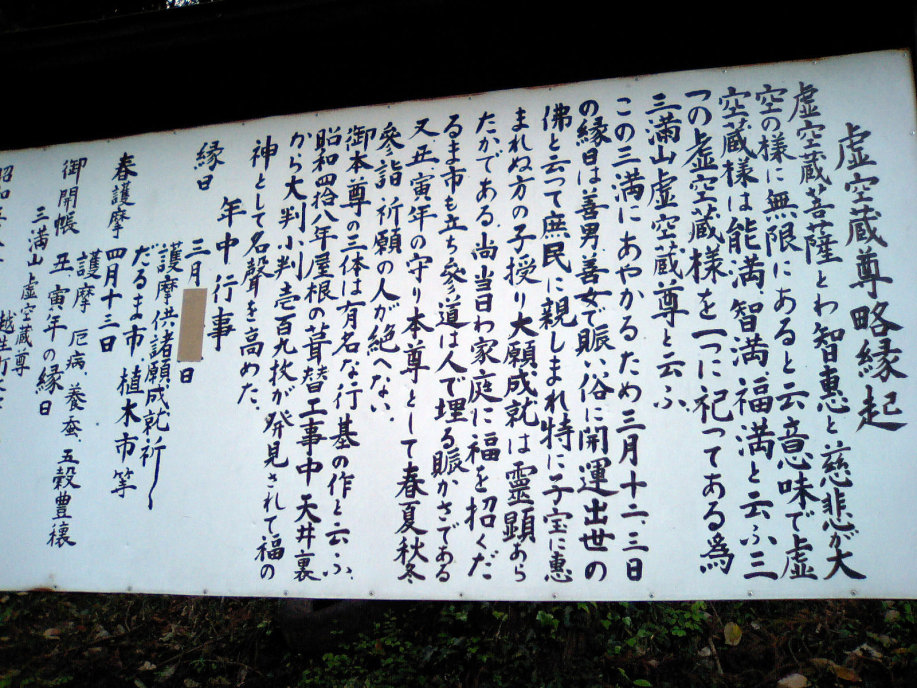 虚空蔵尊略縁起
虚空蔵菩薩とわ智恵と慈悲が大
空の様に無限にあると云意味で虚
空蔵様は能満、智満、福満と云ふ三
つの虚空蔵様を一つに祀つてある為
三満山虚空蔵尊と云ふ
この三満にあやかるため三月十二、三日
の縁日は善男、善女で賑い俗に開運出世の
佛と云って庶民に親しまれ特に子宝に恵
まれぬ方の子授り大願成就は霊顕あら
たかである、尚当日わ家庭に福を招くだ
るま市も立ち参道は人で埋る賑かさである
又、丑、寅年の守り本尊として春夏秋冬
参詣祈願の人が絶へない
御本尊の三体は有名な行基の作と云ふ、
昭和四拾八年屋根の葺替工事中天井裏
から大判小判壱百九枚が発見されて福の
神として名聲を高めた、
年中行事
縁日 三月 日
護摩供諸願成就祈
だるま市、植木市等
春護摩 四月十三日
護摩 厄病、養蚕、五穀豊穣
御開帳 丑、寅年の縁日
三満山 虚空蔵尊
越生町
昭和